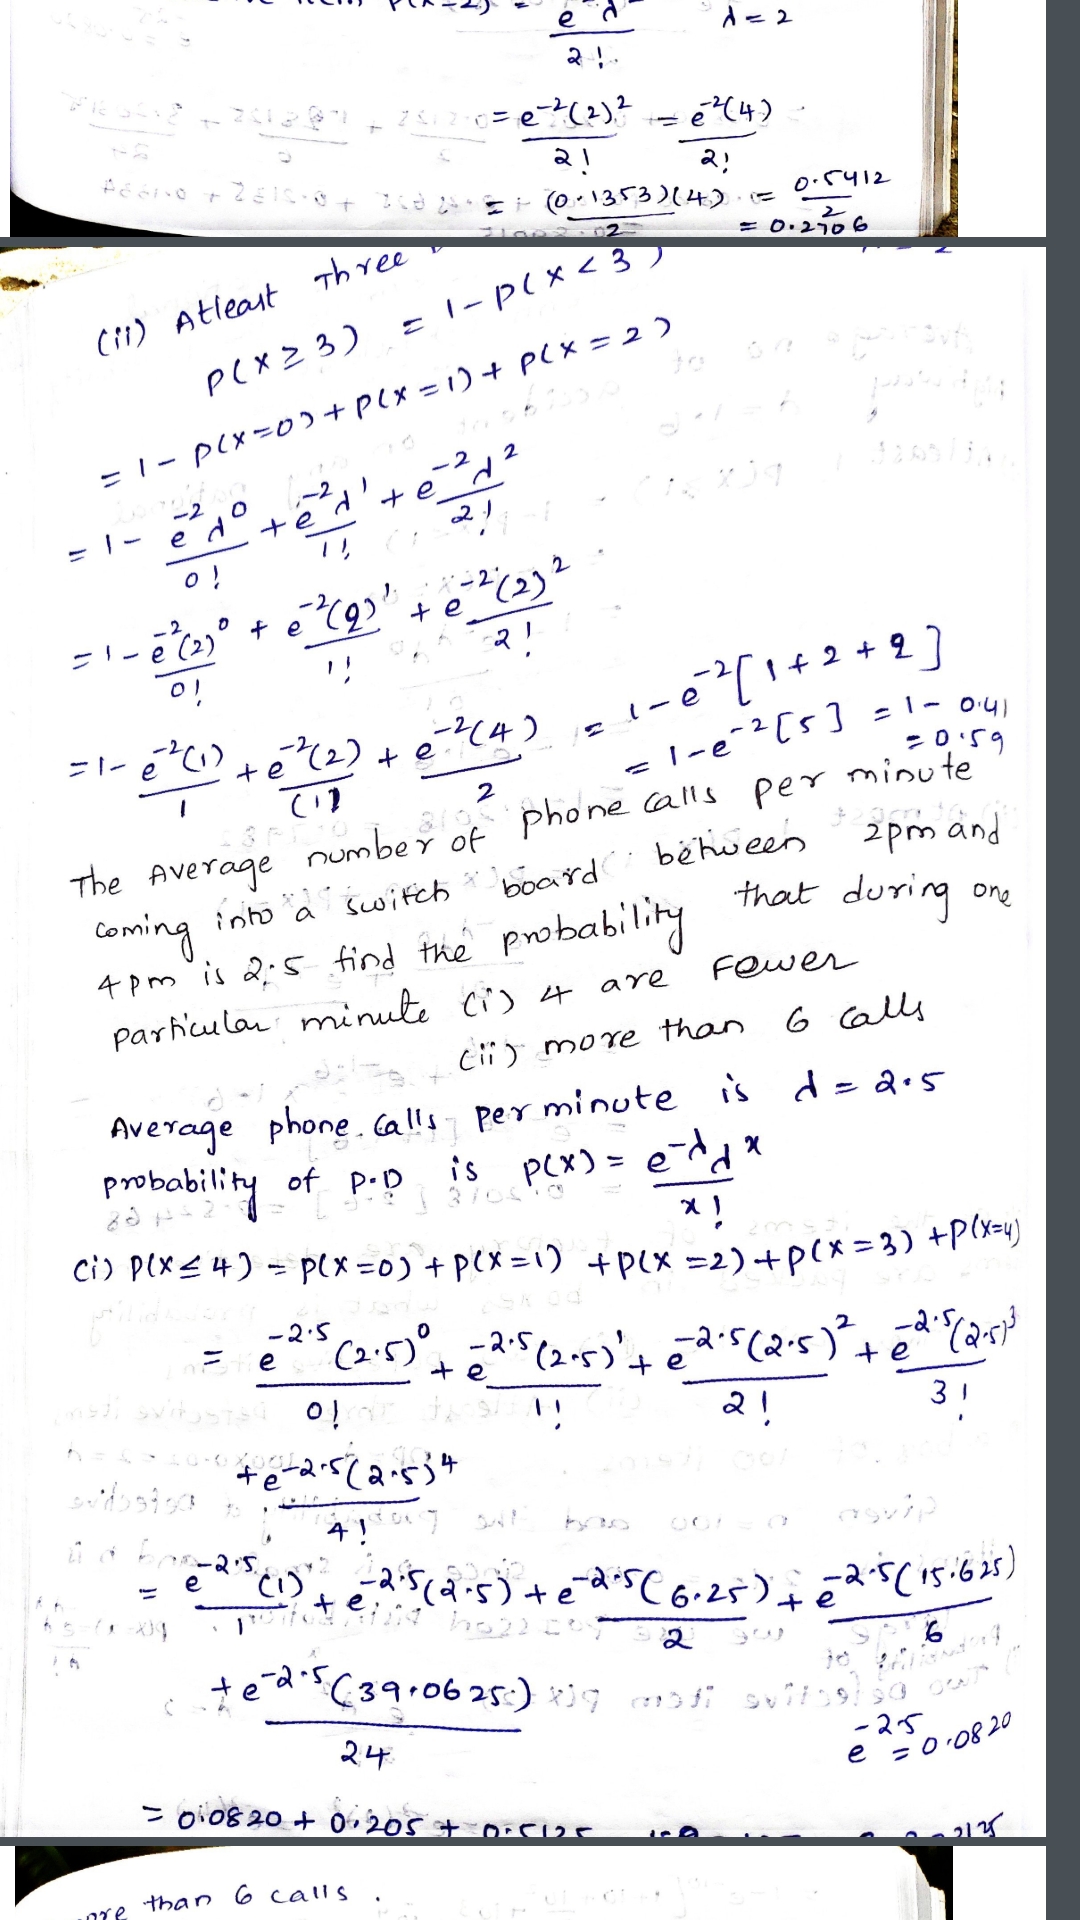 λ = 2
2!
= e^-2(2)^2/2! = e^-2(4)/2!
= (0.1353)(4)/2 = 0.5412/2
= 0.2706
(ii) Atleast Three
P(X ≥ 3) = 1 - P(X < 3)
= 1 - P(X=0) + P(X=1) + P(X=2)
= 1 - e^-2 λ^0/0! + e^-2 λ^1/1! + e^-2 λ^2/2!
= 1 - e^-2(2)^0/0! + e^-2(2)^1/1! + e^-2(2)^2/2!
= 1 - e^-2(1)/1 + e^-2(2)/(1) + e^-2(4)/2 = 1 - e^-2[1+2+2]
= 1 - e^-2[5] = 1 - 0.41
= 0.59
The Average number of phone calls per minute
coming into a switch board between 2pm and
4pm is 2.5 find the probability that during one
particular minute (i) 4 are Fewer
(ii) more than 6 calls
Average phone calls per minute is λ = 2.5
probability of P.D is P(X) = e^-λ λ^x/x!
(i) P(X ≤ 4) = P(X=0) + P(X=1) + P(X=2) + P(X=3) + P(X=4)
= e^-2.5 (2.5)^0/0! + e^-2.5 (2.5)^1/1! + e^-2.5 (2.5)^2/2! + e^-2.5 (2.5)^3/3!
+ e^-2.5 (2.5)^4/4!
= e^-2.5 (1)/1 + e^-2.5 (2.5) + e^-2.5 (6.25)/2 + e^-2.5 (15.625)/6
+ e^-2.5 (39.0625)/24
e^-2.5 = 0.0820
= 0.0820 + 0.205 + 0.5125
than 6 calls.